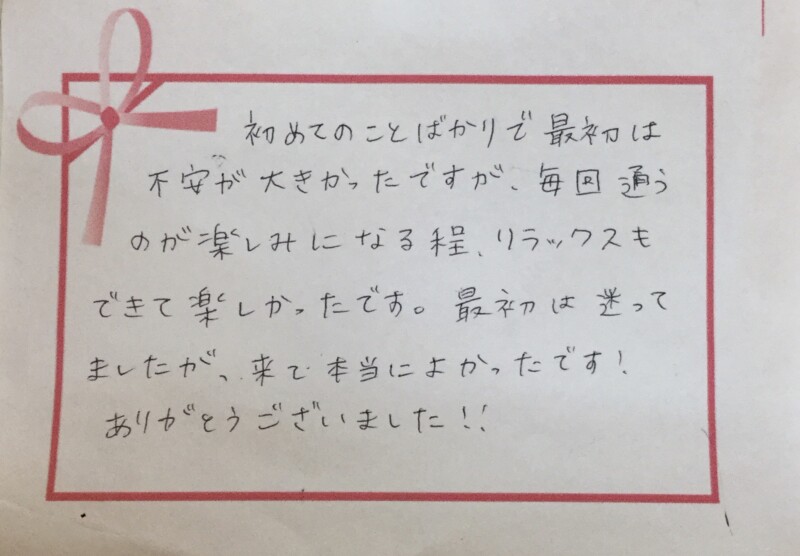 初めてのことばかりで最初は
不安が大きかったですが、毎回通う
のが楽しみになる程、リラックスも
できて楽しかったです。最初は迷って
ましたが、来て本当によかったです!
ありがとうございました!!